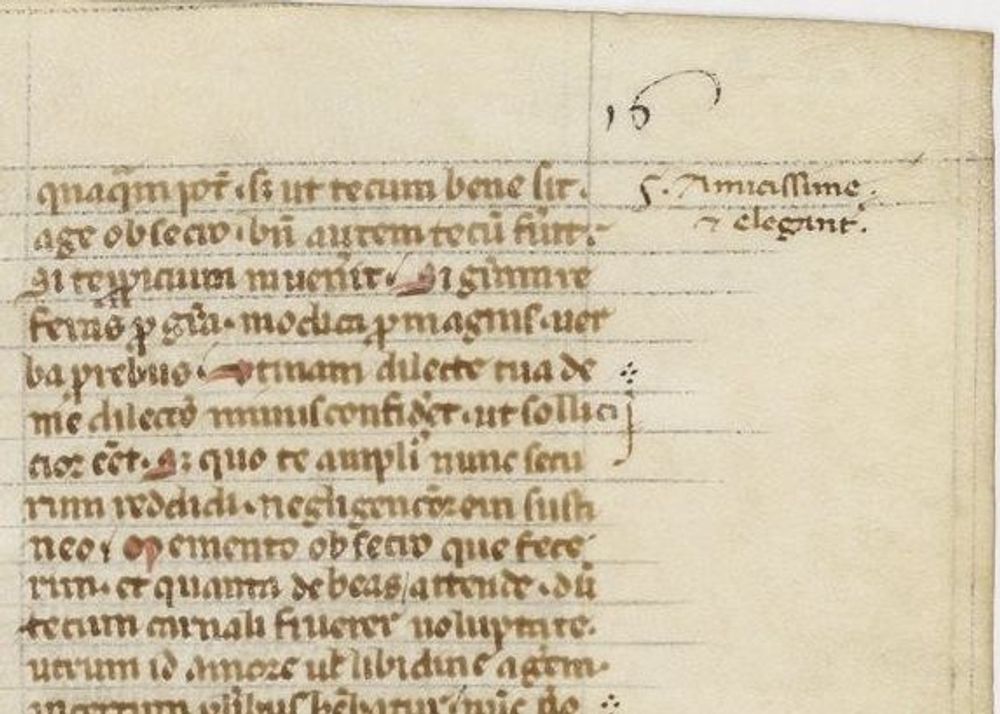 16
quaqm pot. sz ut tecum bene sit.
.s. Amicissime.
age obsecro. bn autem tecu fuit.
⁊ elegant.
si te propicium invenit. Si gram re
feras p gra. modica p magnis. ver
ba p rebus. Utinam dilecte tua de
me dilectio minus confideret. ut sollici
cior eet. Sz quo te ampli nunc secu
rum reddidi. negligentiorem susti
neo. Memento obsecro que fece
rim. et quanta debeas attende. du
tecum carnali fruerer voluptate.
utrum id amore ul libidine agerem.
incertum plibus habebatur.